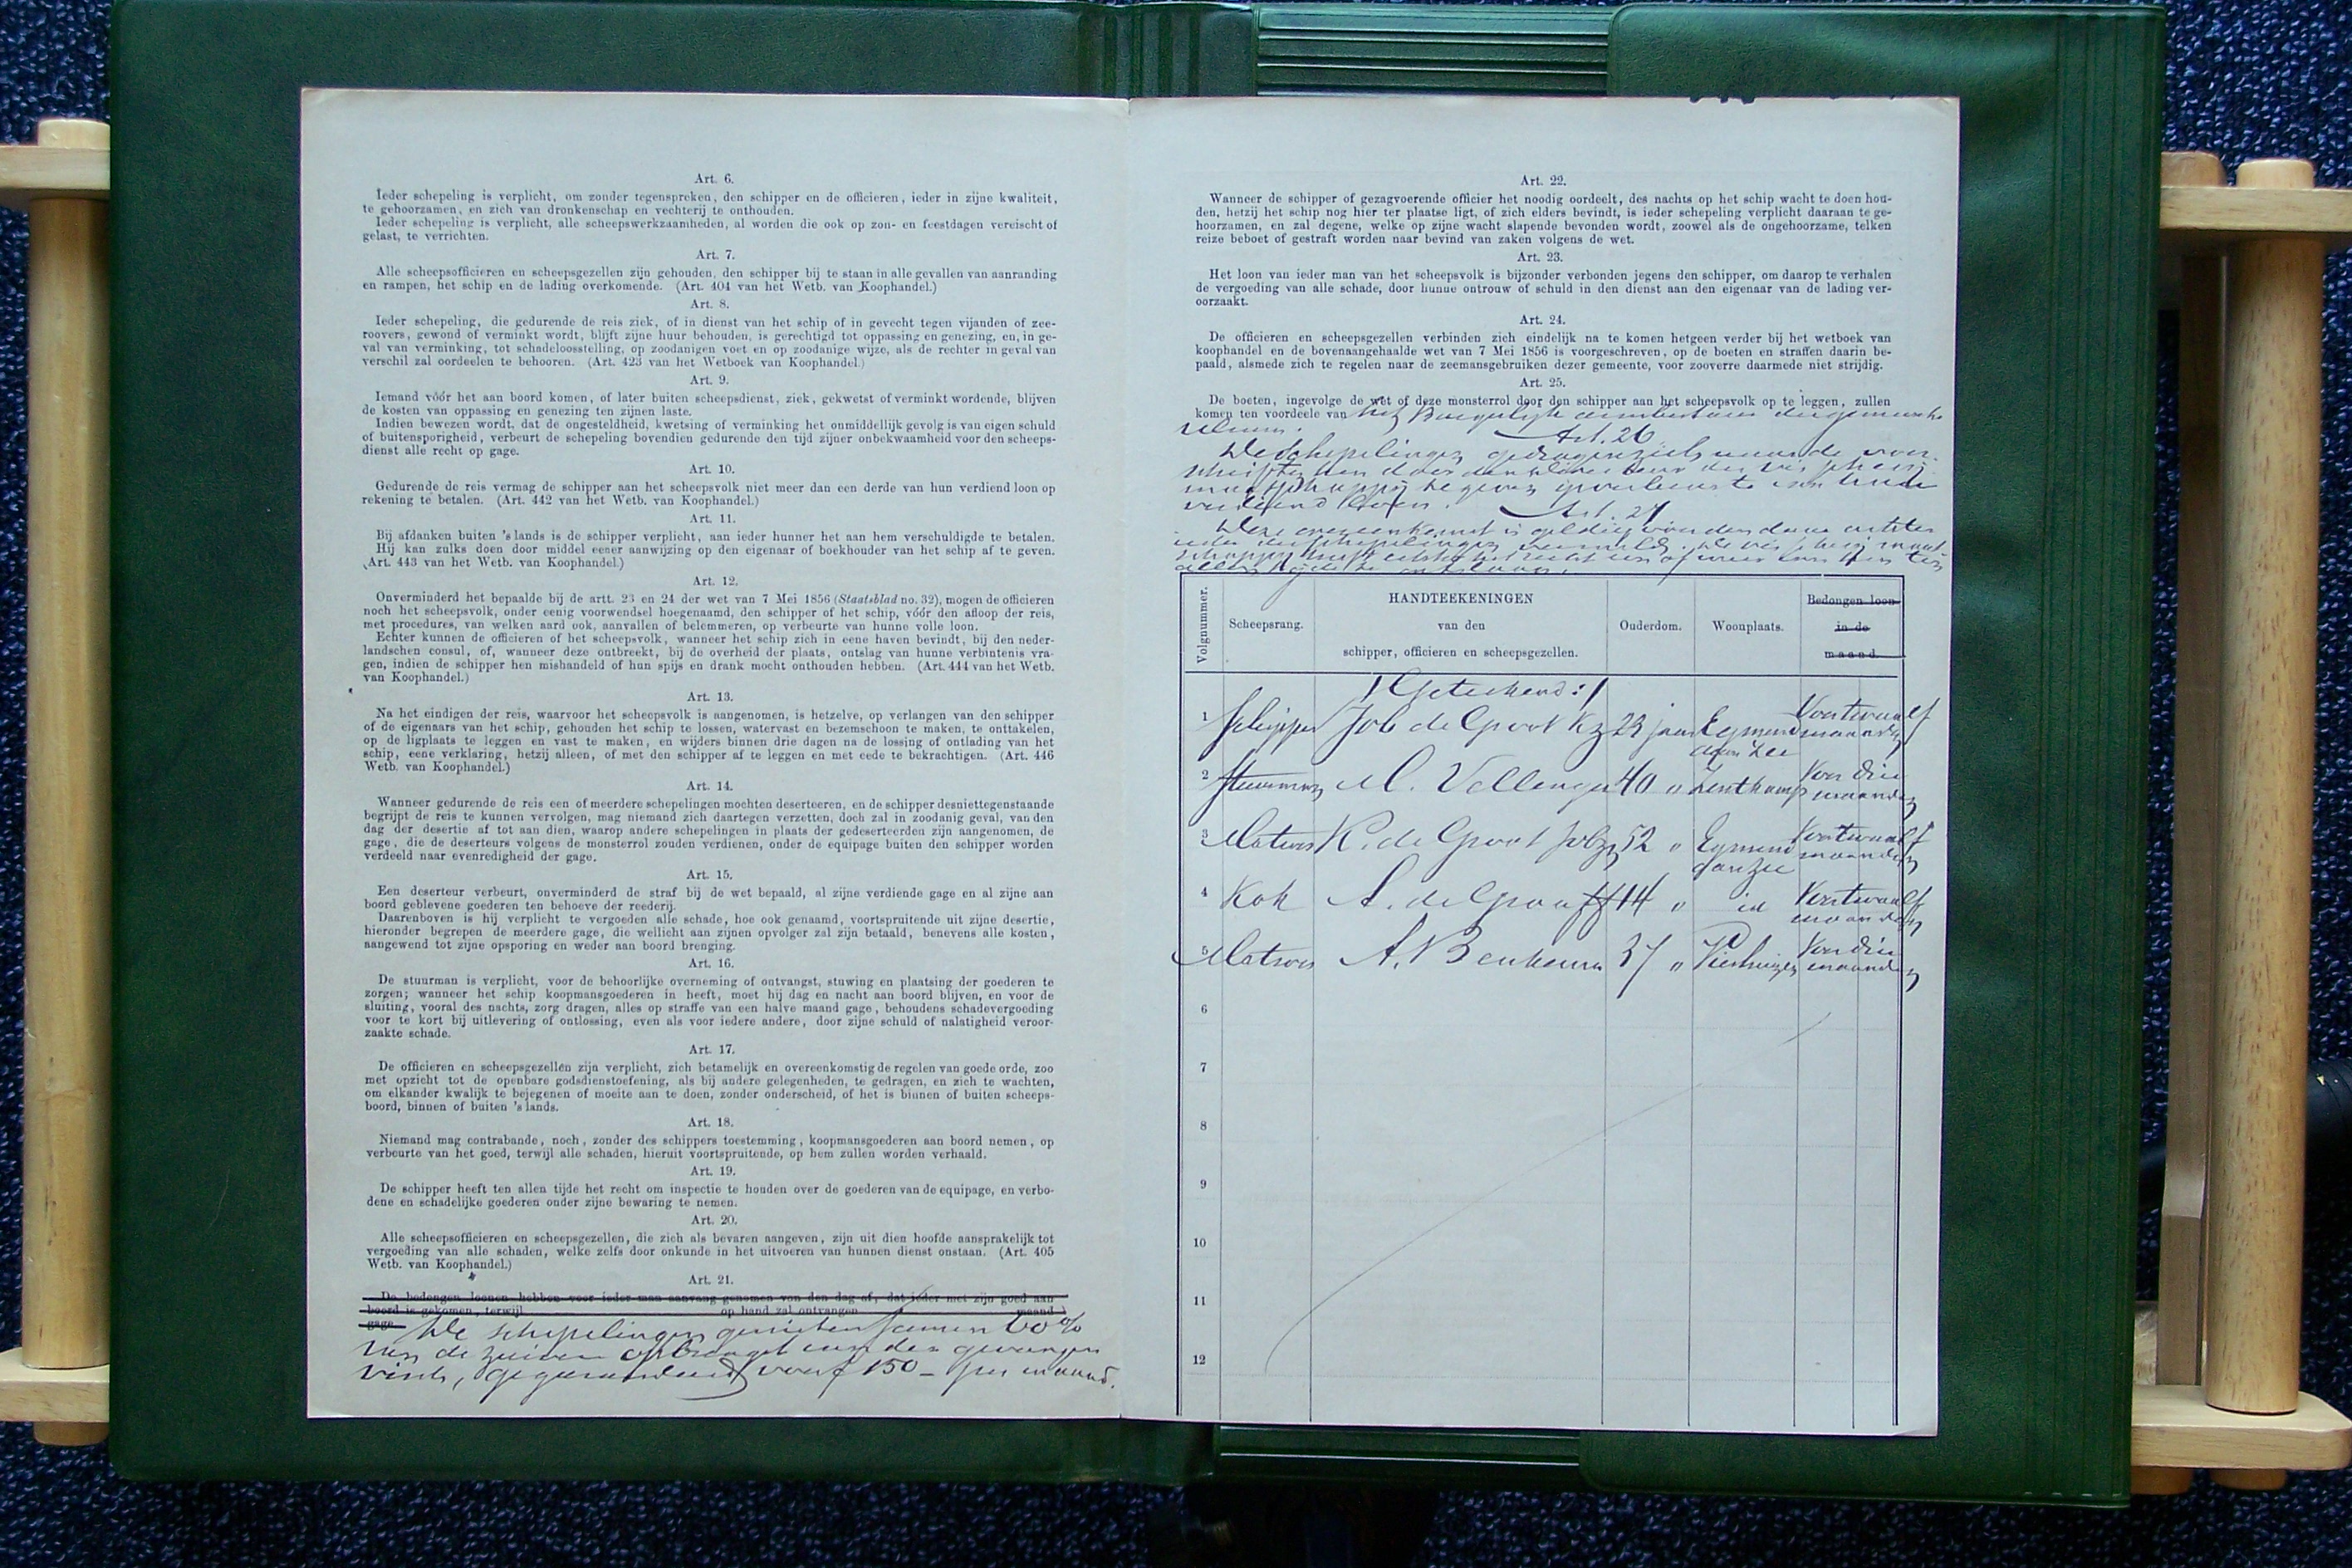 Art. 6.
Ieder schepeling is verplicht, om zonder tegenspreken, den schipper en de officieren, ieder in zijne kwaliteit,
te gehoorzamen, en zich van dronkenschap en vechterij te onthouden.
Ieder schepeling is verplicht, alle scheepswerkzaamheden, al worden die ook op zon- en feestdagen vereischt of
gelast, te verrichten.
Art. 7.
Alle scheepsofficieren en scheepsgezellen zijn gehouden, den schipper bij te staan in alle gevallen van aanranding
en rampen, het schip en de lading overkomende. (Art. 404 van het Wetb. van Koophandel.)
Art. 8.
Ieder schepeling, die gedurende de reis ziek, of in dienst van het schip of in gevecht tegen vijanden of zee-
roovers, gewond of verminkt wordt, blijft zijne huur behouden, is gerechtigd tot oppassing en genezing, en, in ge-
val van verminking, tot schadeloosstelling, op zoodanigen voet en op zoodanige wijze, als de rechter in geval van
verschil zal oordeelen te behooren. (Art. 423 van het Wetboek van Koophandel.)
Art. 9.
Iemand vóór het aan boord komen, of later buiten scheepsdienst, ziek, gekwetst of verminkt wordende, blijven
de kosten van oppassing en genezing ten zijnen laste.
Indien bewezen wordt, dat de ongesteldheid, kwetsing of verminking het onmiddellijk gevolg is van eigen schuld
of buitensporigheid, verbeurt de schepeling bovendien gedurende den tijd zijner onbekwaamheid voor den scheeps-
dienst alle recht op gage.
Art. 10.
Gedurende de reis vermag de schipper aan het scheepsvolk niet meer dan een derde van hun verdiend loon op
rekening te betalen. (Art. 442 van het Wetb. van Koophandel.)
Art. 11.
Bij afdanken buiten 's lands is de schipper verplicht, aan ieder hunner het aan hem verschuldigde te betalen.
Hij kan zulks doen door middel eener aanwijzing op den eigenaar of boekhouder van het schip af te geven.
(Art. 443 van het Wetb. van Koophandel.)
Art. 12.
Onverminderd het bepaalde bij de artt. 23 en 24 der wet van 7 Mei 1856 (Staatsblad no. 32), mogen de officieren
noch het scheepsvolk, onder eenig voorwendsel hoegenaamd, den schipper of het schip, vóór den afloop der reis,
met procedures, van welken aard ook, aanvallen of belemmeren, op verbeurte van hunne volle loon.
Echter kunnen de officieren of het scheepsvolk, wanneer het schip zich in eene haven bevindt, bij den neder-
landschen consul, of, wanneer deze ontbreekt, bij de overheid der plaats, ontslag van hunne verbintenis vra-
gen, indien de schipper hen mishandeld of hun spijs en drank mocht onthouden hebben. (Art. 444 van het Wetb.
van Koophandel.)
Art. 13.
Na het eindigen der reis, waarvoor het scheepsvolk is aangenomen, is hetzelve, op verlangen van den schipper
of de eigenaars van het schip, gehouden het schip te lossen, watervast en bezemschoon te maken, te onttakelen,
op de ligplaats te leggen en vast te maken, en wijders binnen drie dagen na de lossing of ontlading van het
schip, eene verklaring, hetzij alleen, of met den schipper af te leggen en met eede te bekrachtigen. (Art. 446
Wetb. van Koophandel.)
Art. 14.
Wanneer gedurende de reis een of meerdere schepelingen mochten deserteeren, en de schipper desniettegenstaande
begrijpt de reis te kunnen vervolgen, mag niemand zich daartegen verzetten, doch zal in zoodanig geval, van den
dag der desertie af tot aan dien, waarop andere schepelingen in plaats der gedeserteerden zijn aangenomen, de
gage, die de deserteurs volgens de monsterrol zouden verdienen, onder de equipage buiten den schipper worden
verdeeld naar evenredigheid der gage.
Art. 15.
Een deserteur verbeurt, onverminderd de straf bij de wet bepaald, al zijne verdiende gage en al zijne aan
boord geblevene goederen ten behoeve der reederij.
Daarenboven is hij verplicht te vergoeden alle schade, hoe ook genaamd, voortspruitende uit zijne desertie,
hieronder begrepen de meerdere gage, die wellicht aan zijnen opvolger zal zijn betaald, benevens alle kosten,
aangewend tot zijne opsporing en weder aan boord brenging.
Art. 16.
De stuurman is verplicht, voor de behoorlijke overneming of ontvangst, stuwing en plaatsing der goederen te
zorgen; wanneer het schip koopmansgoederen in heeft, moet hij dag en nacht aan boord blijven, en voor de
sluiting, vooral des nachts, zorg dragen, alles op straffe van een halve maand gage, behoudens schadevergoeding
voor te kort bij uitlevering of ontlossing, even als voor iedere andere, door zijne schuld of nalatigheid veroor-
zaakte schade.
Art. 17.
De officieren en scheepsgezellen zijn verplicht, zich betamelijk en overeenkomstig de regelen van goede orde, zoo
met opzicht tot de openbare godsdienstoefening, als bij andere gelegenheden, te gedragen, en zich te wachten,
om elkander kwalijk te bejegenen of moeite aan te doen, zonder onderscheid, of het is binnen of buiten scheeps-
boord, binnen of buiten 's lands.
Art. 18.
Niemand mag contrabande, noch, zonder des schippers toestemming, koopmansgoederen aan boord nemen, op
verbeurte van het goed, terwijl alle schaden, hieruit voortspruitende, op hem zullen worden verhaald.
Art. 19.
De schipper heeft ten allen tijde het recht om inspectie te houden over de goederen van de equipage, en verbo-
dene en schadelijke goederen onder zijne bewaring te nemen.
Art. 20.
Alle scheepsofficieren en scheepsgezellen, die zich als bevaren aangeven, zijn uit dien hoofde aansprakelijk tot
vergoeding van alle schaden, welke zelfs door onkunde in het uitvoeren van hunnen dienst onstaan. (Art. 405
Wetb. van Koophandel.)
Art. 21.
De bedongen loonen hebben voor ieder man aanvang genomen van den dag af, dat ieder met zijn goed aan
boord is gekomen, terwijl op hand zal ontvangen maand
gage.
De schepelingen genieten samen 60%
van de zuivere opbrengst van den gevangen
visch, gegarandeerd voor f 150 - per maand.
Art. 22.
Wanneer de schipper of gezagvoerende officier het noodig oordeelt, des nachts op het schip wacht te doen hou-
den, hetzij het schip nog hier ter plaatse ligt, of zich elders bevindt, is ieder schepeling verplicht daaraan te ge-
hoorzamen, en zal degene, welke op zijne wacht slapende bevonden wordt, zoowel als de ongehoorzame, telken
reize beboet of gestraft worden naar bevind van zaken volgens de wet.
Art. 23.
Het loon van ieder man van het scheepsvolk is bijzonder verbonden jegens den schipper, om daarop te verhalen
de vergoeding van alle schade, door hunne ontrouw of schuld in den dienst aan den eigenaar van de lading ver-
oorzaakt.
Art. 24.
De officieren en scheepsgezellen verbinden zich eindelijk na te komen hetgeen verder bij het wetboek van
koophandel en de bovenaangehaalde wet van 7 Mei 1856 is voorgeschreven, op de boeten en straffen daarin be-
paald, alsmede zich te regelen naar de zeemansgebruiken dezer gemeente, voor zooverre daarmede niet strijdig.
Art. 25.
De boeten, ingevolge de wet of deze monsterrol door den schipper aan het scheepsvolk op te leggen, zullen
komen ten voordeele van het Burgerlijk armbestuur der gemeente
Art. 26
De schepelingen gedragen zich naar de voor-
schriften hen door den directeur der visscherij
maatschappij te geven
Art. 27
Deze overeenkomst is geldig van den datum achter
ieder der schepelingen vermeld. De visscherij maat-
schappij heeft echter het recht een of meer van hen ten
allen tijde te ontslaan.
Volgnummer.
Scheepsrang.
HANDTEEKENINGEN
van den
schipper, officieren en scheepsgezellen.
Ouderdom.
Woonplaats.
Bedongen loon
in de
maand.
/Geteekend:/
1 Schipper Job de Groot Kz 23 jaar Egmond aan Zee Voor twaalf maanden
2 Stuurman M. Vellenga 40 " Zoutkamp Voor drie maanden
3 Matroos K. de Groot Jobzn 52 " Egmond aan Zee Voor twaalf maanden
4 Kok A. de Graaff 14 " id Voor twaalf maanden
5 Matroos A. Beukema 37 " Vierhuizen Voor drie maanden
6
7
8
9
10
11
12